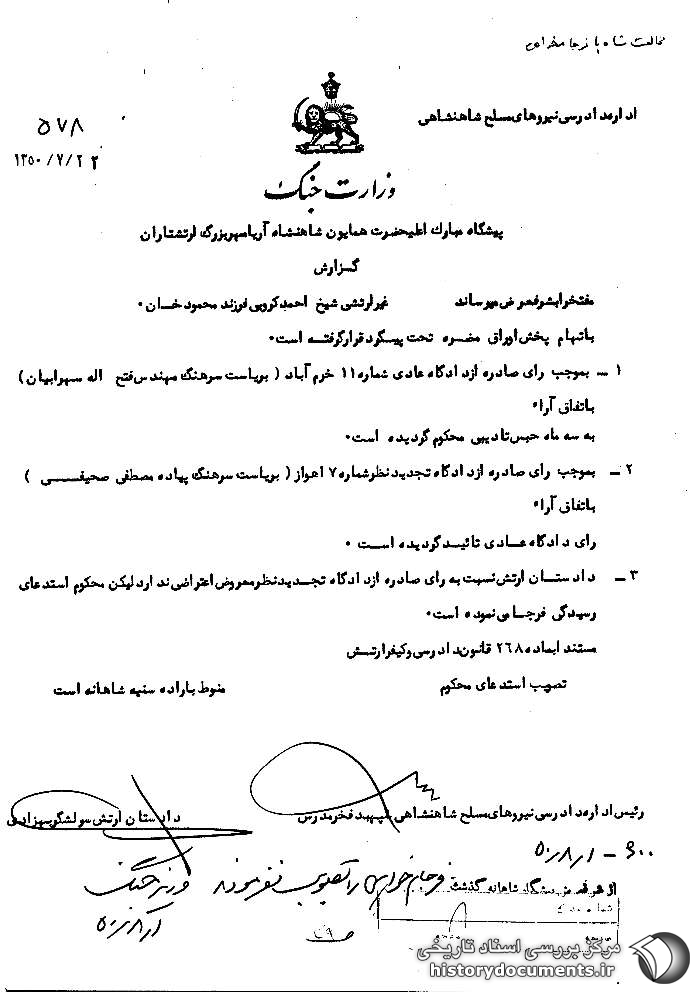 مخالفت شاه با فرجامخواهی
اداره دادرسی نیروهای مسلح شاهنشاهی
۵۷۸
۱۳۵۰/۷/۲۲
وزارت جنگ
پیشگاه مبارک اعلیحضرت همایون شاهنشاه آریامهر بزرگ ارتشتاران
گزارش
مفتخرا بشرفعرض میرساند غیرارتشی شیخ احمد کروبی فرزند محمود خان ۰
باتهام پخش اوراق مضره تحت پیگرد قرار گرفته است۰
۱ ــ بموجب رای صادره از دادگاه عادی شماره ۱۱ خرم آباد ( بریاست سرهنگ مهندس فتح اله سهرابیان)
باتفاق آراء
به سه ماه حبس تادیبی محکوم گردیده است۰
۲ ــ بموجب رای صادره از دادگاه تجدید نظر شماره ۷ اهواز ( بریاست سرهنگ پیاده مصطفی صحیفی )
باتفاق آراء
رای دادگاه عادی تائید گردیده است ۰
۳ ــ دادستان ارتش نسبت به رای صادره از دادگاه تجدید نظر معروض اعتراضی ندارد لیکن محکوم استدعای
رسیدگی فرجامی نموده است۰
مستند ابماده ۲۶۸ قانون دادرسی و کیفر ارتش
تصویب استدعای محکوم منوط باراده سنیه شاهانه است
رئیس اداره دادرسی نیروهای مسلح شاهنشاهی سپهبد فخر مدرس
دادستان ارتش سولشگر بهزادی
از شرفعرض پیشگاه شاهانه گذشت فرجام خواهی را تصویب نفرمودند وزیر جنگ
۵۰/۸/۱
مرکز بررسی اسناد تاریخی
historydocuments.ir